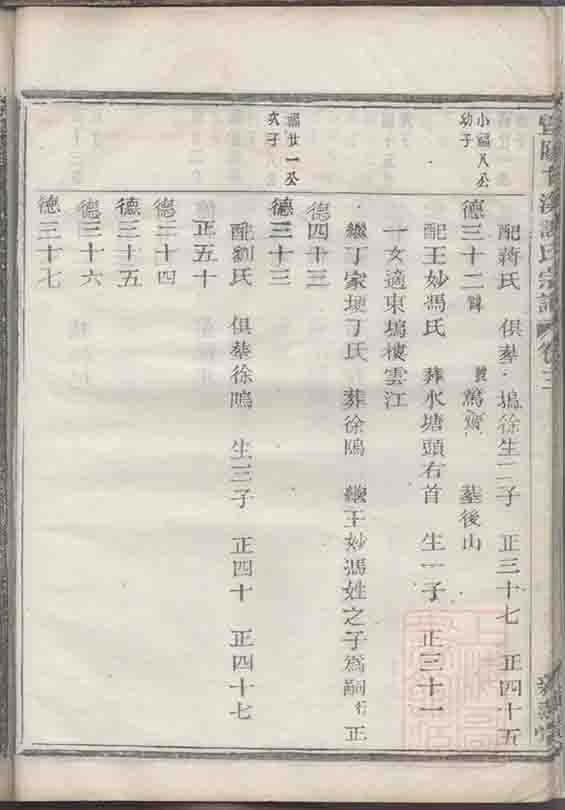 配蔣氏 俱葬塢徐生二子 正三十七 正四十五
小福八公
幼子
德三十二 號 篤齋 墓後山
配王妙馮氏 葬水塘頭右首 生一子 正三十一
一女適東塢樓雲江
繼丁家埂丁氏 葬徐塢 繼王妙馮姓之子爲嗣行正
德四十三
福廿一公
次子
德三十三
配劉氏 俱葬徐塢 生三子 正四十 正四十七
正五十
德二十四
德三十五
德三十六
德三十七